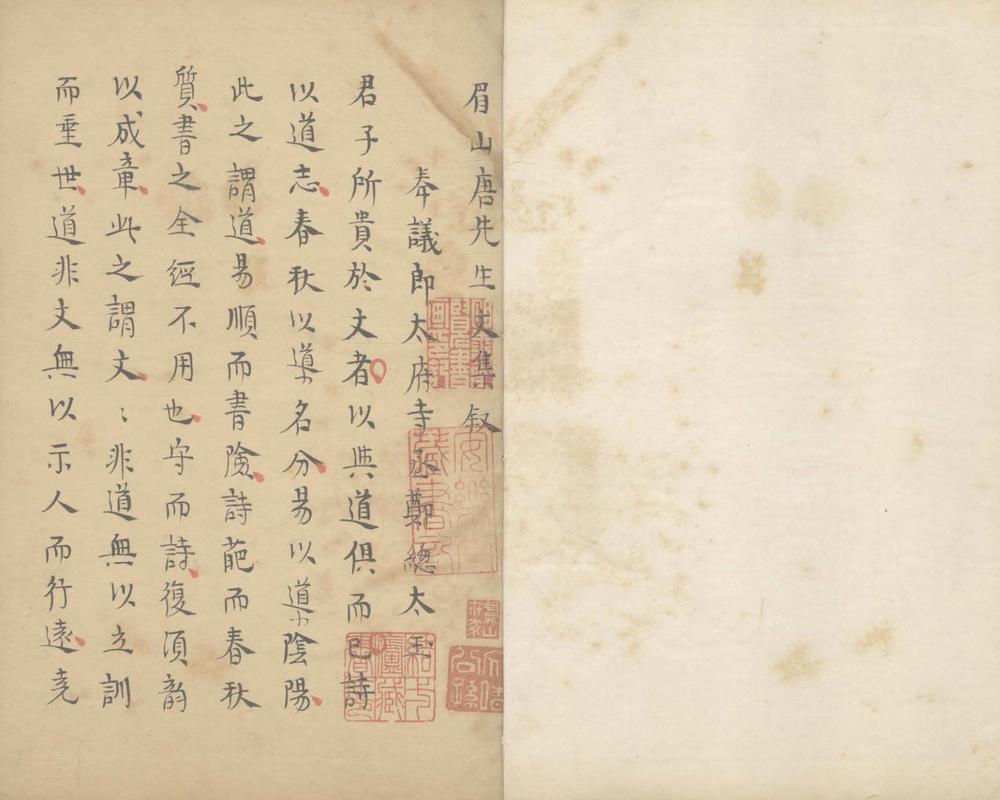 眉山唐先生文集叙
奉議郎太府寺丞鄭總太玉
君子所貴於文者以與道俱而已詩
以道志春秋以導名分易以導陰陽
此之謂道易順而書險詩葩而春秋
質書之全經不用也守而詩復須韵
以成章此之謂文〻非道無以立訓
而垂世道非文無以示人而行遠堯